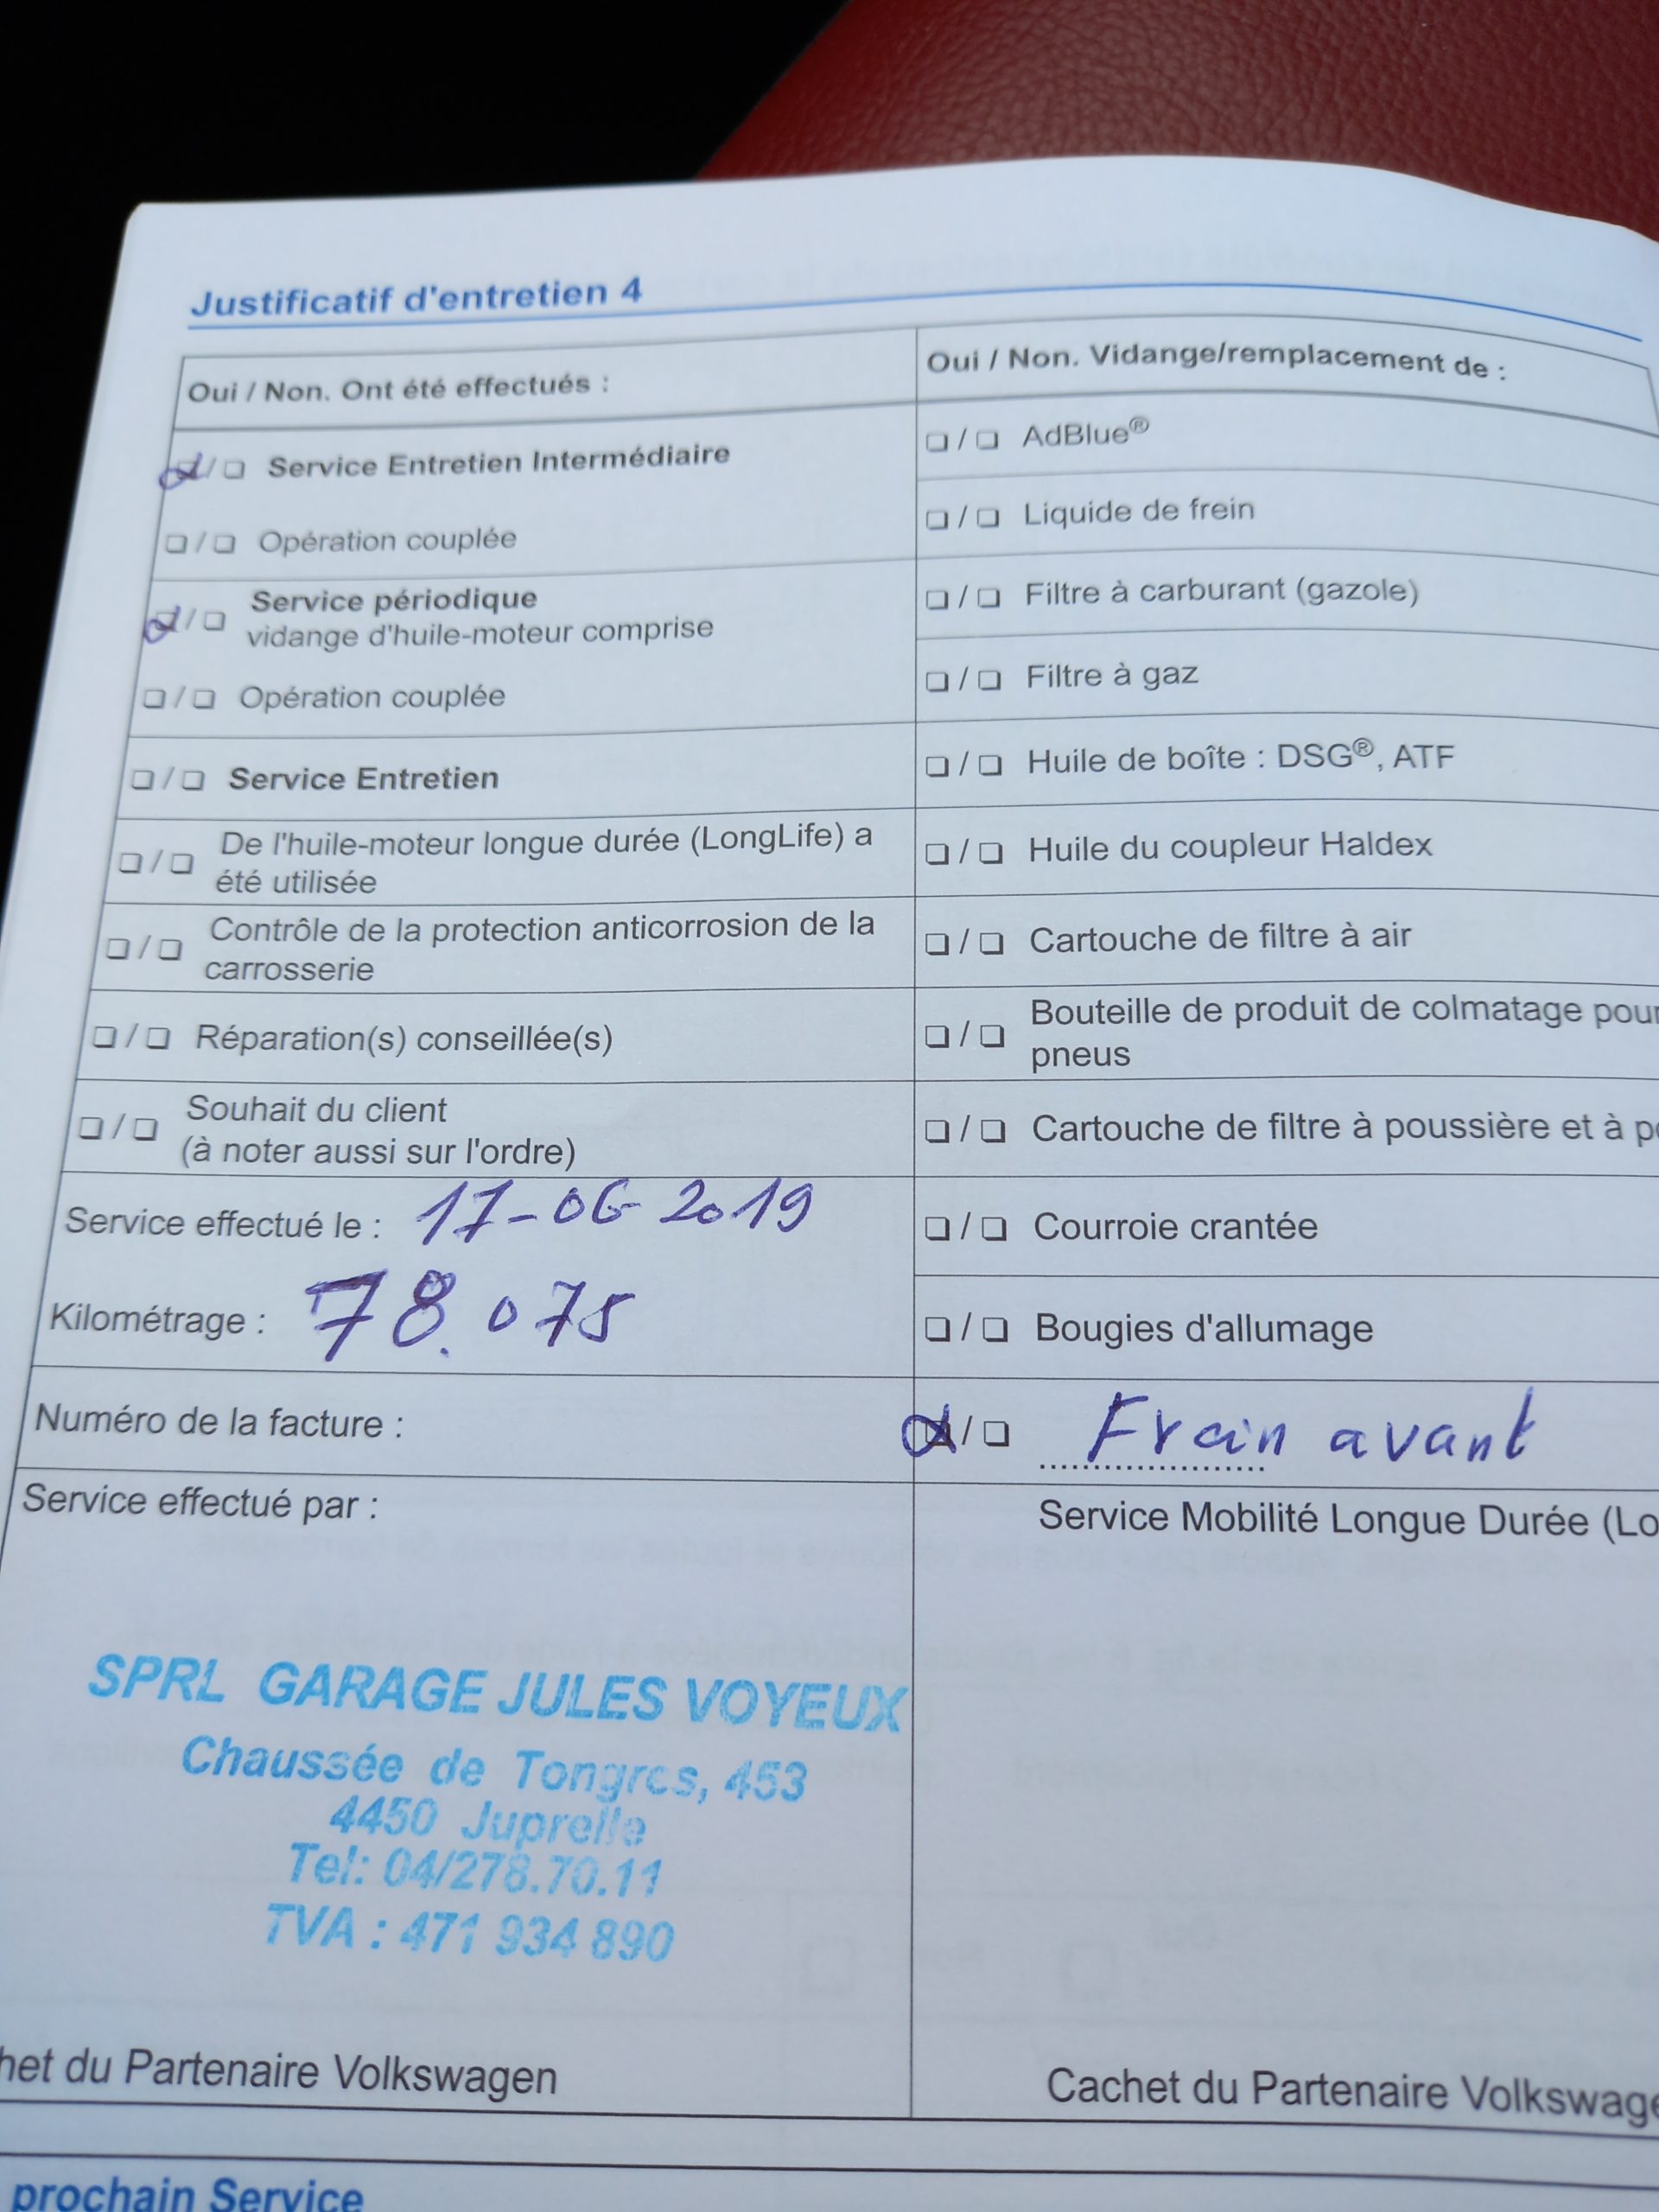 Justificatif d'entretien 4
Oui / Non. Ont été effectués :
❏/❏ Service Entretien Intermédiaire
❏/❏ Opération couplée
❏/❏ Service périodique
vidange d'huile-moteur comprise
❏/❏ Opération couplée
❏/❏ Service Entretien
❏/❏ De l'huile-moteur longue durée (LongLife) a
été utilisée
❏/❏ Contrôle de la protection anticorrosion de la
carrosserie
❏/❏ Réparation(s) conseillée(s)
❏/❏ Souhait du client
(à noter aussi sur l'ordre)
Service effectué le : 17-06-2019
Kilométrage : 78.075
Numéro de la facture :
Service effectué par :
SPRL GARAGE JULES VOYEUX
Chaussée de Tongres, 453
4450 Juprelle
Tel: 04/278.70.11
TVA : 471 934 890
het du Partenaire Volkswagen
Oui / Non. Vidange/remplacement de :
❏/❏ AdBlue®
❏/❏ Liquide de frein
❏/❏ Filtre à carburant (gazole)
❏/❏ Filtre à gaz
❏/❏ Huile de boîte : DSG®, ATF
❏/❏ Huile du coupleur Haldex
❏/❏ Cartouche de filtre à air
❏/❏ Bouteille de produit de colmatage pour
pneus
❏/❏ Cartouche de filtre à poussière et à po
❏/❏ Courroie crantée
❏/❏ Bougies d'allumage
❏/❏ Frein avant
Service Mobilité Longue Durée (Lo
Cachet du Partenaire Volkswage
prochain Service